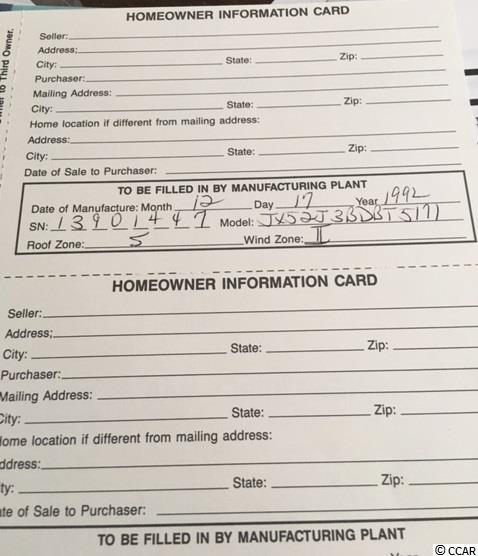 HOMEOWNER INFORMATION CARD
Seller:
Address:
City: State: Zip:
Purchaser:
Mailing Address:
City: State: Zip:
Home location if different from mailing address:
Address:
City: State: Zip:
Date of Sale to Purchaser:
to Third Owner.
TO BE FILLED IN BY MANUFACTURING PLANT
Date of Manufacture: Month 12 Day 17 Year 1992
SN: 13901447 Model:
Roof Zone: 5 Wind Zone: II
HOMEOWNER INFORMATION CARD
Seller:
Address;
City: State: Zip:
Purchaser:
Mailing Address:
City: State: Zip:
ome location if different from mailing address:
ddress:
ty: State: Zip:
te of Sale to Purchaser:
TO BE FILLED IN BY MANUFACTURING PLANT
© CCAR